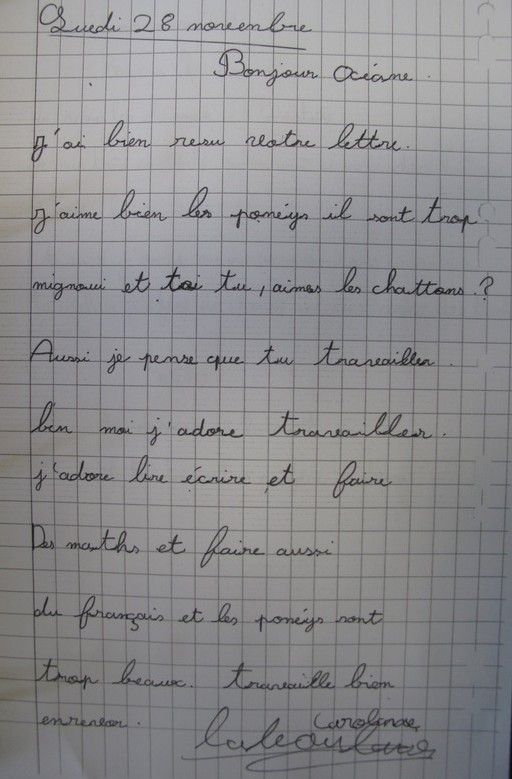 Luedi 28 novembre
Bonjour Océane.
j'ai bien resu votre lettre.
j'aime bien les ponéys il sont trop
et toi tu, aimes les chattons.?
Aussi je pense que tu travailles.
ben moi j'adore travailler.
j'adore lire écrire et faire
Des maths et faire aussi
du français et les ponéys sont
trop beaux. travaille bien